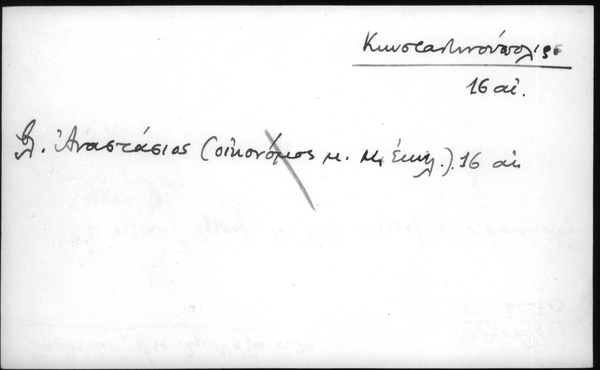 Κωνσταντινούπολις
16 αἰ.
βλ. Ἀναστάσιος (οἰκονόμος μ. Μ. Ἐκκλ.). 16 αἰ